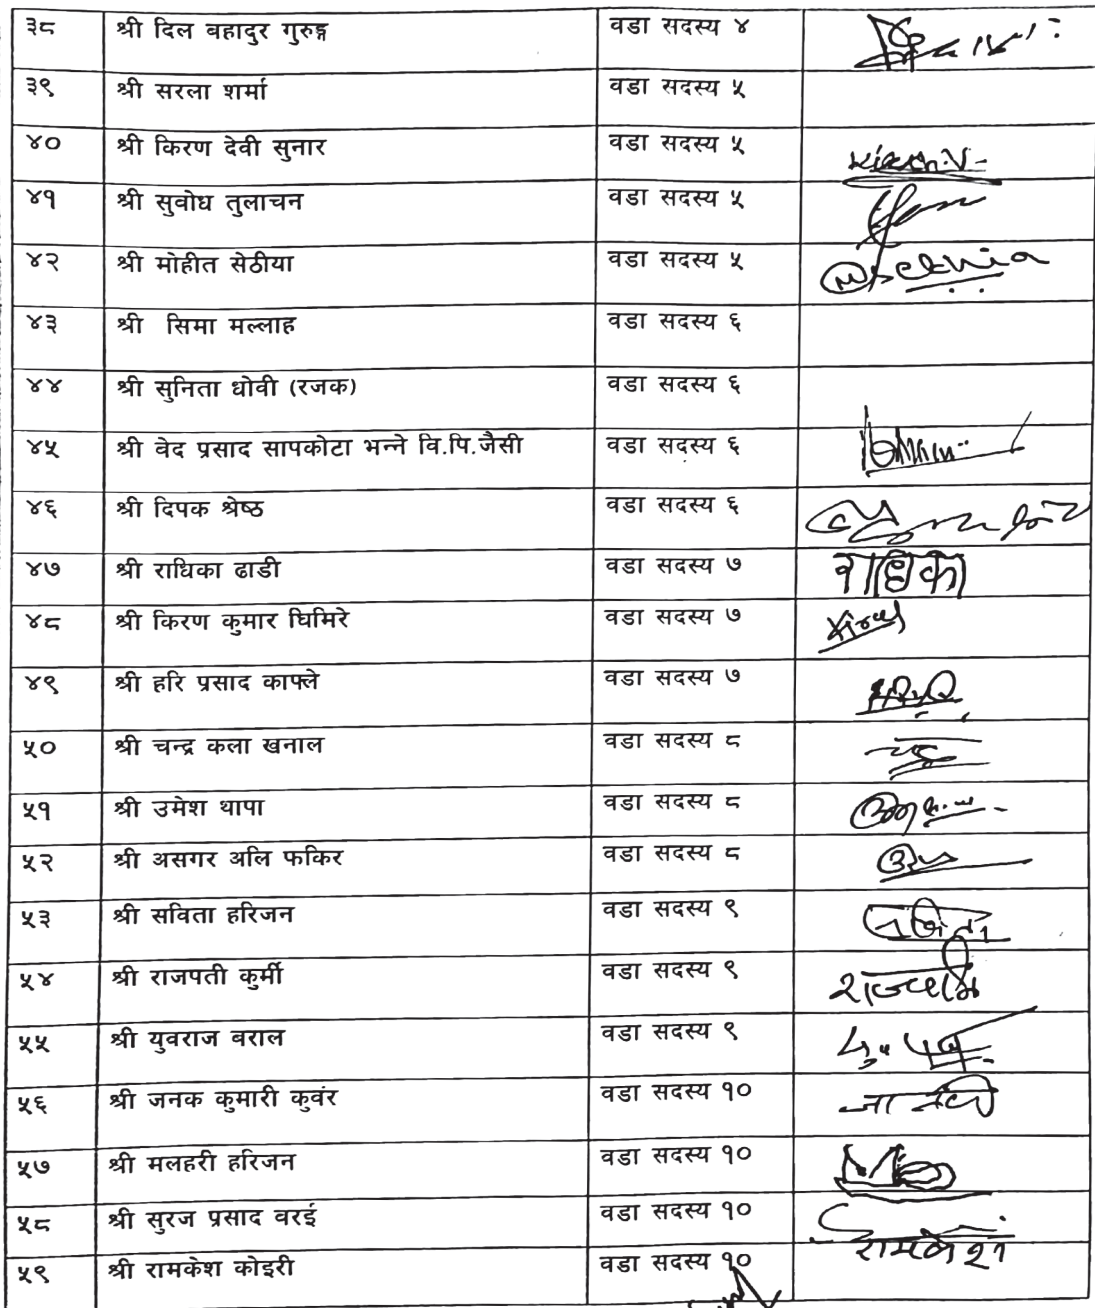 ३८ श्री दिल बहादुर गुरुङ्ग वडा सदस्य ४
३९ श्री सरला शर्मा वडा सदस्य ५
४० श्री किरण देवी सुनार वडा सदस्य ५
४१ श्री सुवोध तुलाचन वडा सदस्य ५
४२ श्री मोहीत सेठीया वडा सदस्य ५
४३ श्री सिमा मल्लाह वडा सदस्य ६
४४ श्री सुनिता धोवी (रजक) वडा सदस्य ६
४५ श्री वेद प्रसाद सापकोटा भन्ने वि.पि.जैसी वडा सदस्य ६
४६ श्री दिपक श्रेष्ठ वडा सदस्य ६
४७ श्री राधिका ढाडी वडा सदस्य ७ राधिका
४८ श्री किरण कुमार घिमिरे वडा सदस्य ७
४९ श्री हरि प्रसाद काफ्ले वडा सदस्य ७
५० श्री चन्द्र कला खनाल वडा सदस्य ८
५१ श्री उमेश थापा वडा सदस्य ८
५२ श्री असगर अलि फकिर वडा सदस्य ८
५३ श्री सविता हरिजन वडा सदस्य ९
५४ श्री राजपती कुर्मी वडा सदस्य ९
५५ श्री युवराज बराल वडा सदस्य ९
५६ श्री जनक कुमारी कुवंर वडा सदस्य १०
५७ श्री मलहरी हरिजन वडा सदस्य १०
५८ श्री सुरज प्रसाद वरई वडा सदस्य १०
५९ श्री रामकेश कोइरी वडा सदस्य १० रामकेश